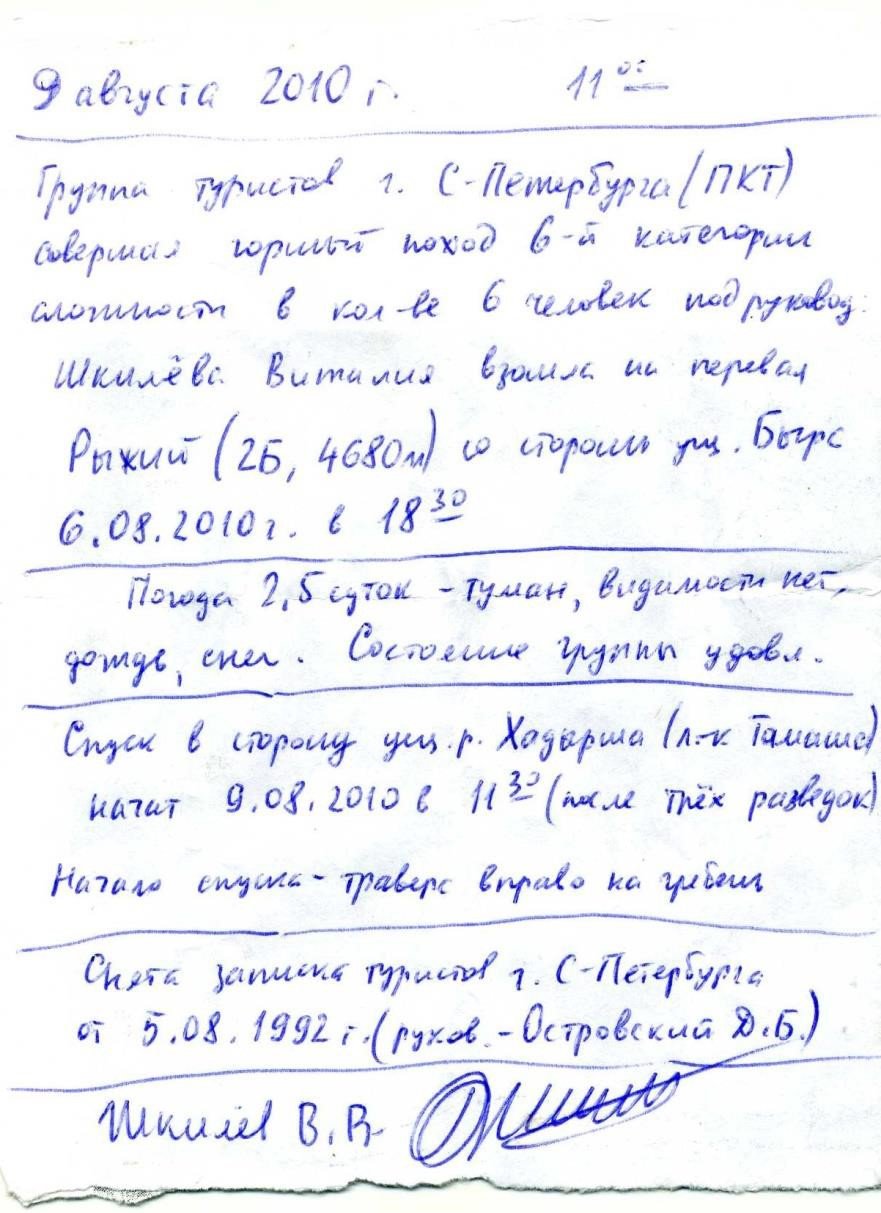 9 августа 2010 г. 11⁰⁰
Группа туристов г. С-Петербурга (ПКТ)
совершая горный поход 6-й категории
сложности в кол-ве 6 человек под руковод.
Шкилёва Виталия взошла на перевал
Рыжий (2Б, 4680м) со стороны ущ. Бырс
6.08.2010г. в 18³⁰
Погода 2,5 суток - туман, видимости нет,
дождь, снег. Состояние группы удовл.
Спуск в сторону ущ. р. Хадырша (л-к Тамаша)
начат 9.08.2010 в 11³⁰ (после трёх разведок)
Начало спуска - траверс вправо на гребень
Снята записка туристов г. С-Петербурга
от 5.08.1992 г. (руков. - Островский Д.Б.)
Шкилёв В.В.